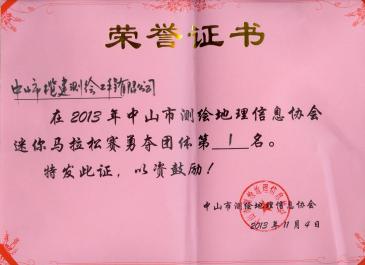 荣誉证书
中山市煊建测绘工程有限公司
在2013年中山市测绘地理信息协会
迷你马拉松赛勇夺团体第 1 名。
特发此证，以资鼓励！
中山市测绘地理信息协会
2013年11月4日